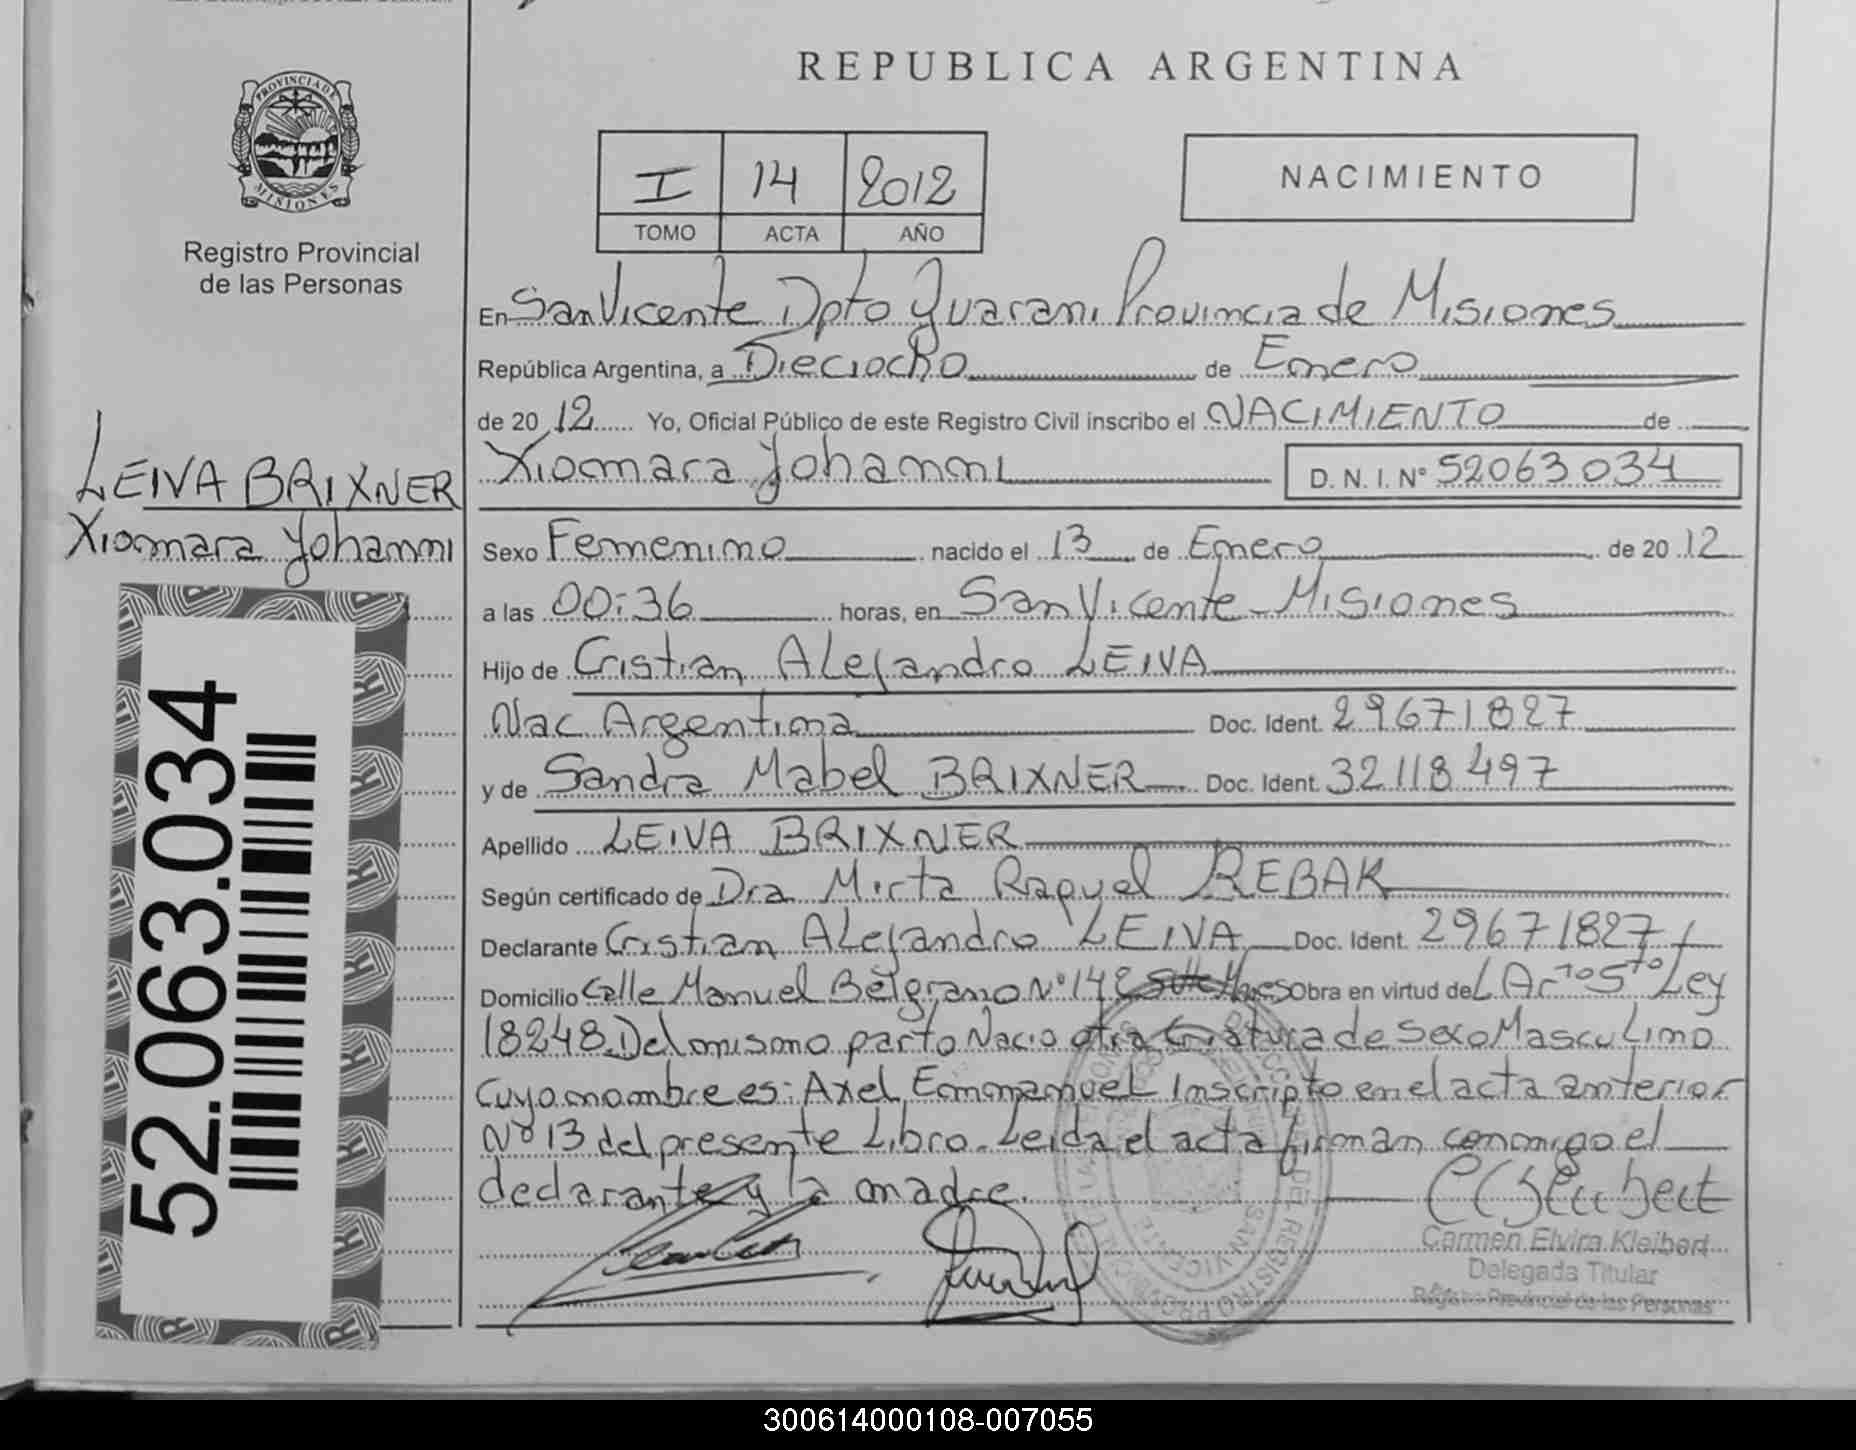 PROVINCIA DE
MISIONES
Registro Provincial
de las Personas
REPUBLICA ARGENTINA
I 14 2012
TOMO ACTA AÑO
NACIMIENTO
En San Vicente Dpto Guarani Provincia de Misiones
República Argentina, a Dieciocho de Enero
de 20 12 Yo, Oficial Público de este Registro Civil inscribo el NACIMIENTO de
Xiomara Yohanni D. N. I. N° 52063034
LEIVA BRIXNER
Xiomara Yohanni
Sexo Femenino nacido el 13 de Enero de 20 12
a las 00:36 horas, en San Vicente - Misiones
Hijo de Cristian Alejandro LEIVA
Nac Argentina Doc. Ident. 29671827
y de Sandra Mabel BRIXNER Doc. Ident. 32118497
Apellido LEIVA BRIXNER
Según certificado de Dra Mirta Raquel REBAK
Declarante Cristian Alejandro LEIVA Doc. Ident. 29671827
Domicilio Calle Manuel Belgrano N° 142 Obra en virtud del Arto 5to Ley
18248. Del mismo parto Nacio otra Criatura de sexo Masculino
Cuyo nombre es: Axel Emmanuel Inscripto en el acta anterior
N° 13 del presente Libro. Leida el acta firman conmigo el
declarante y la madre.
Carmen Elvira Kleibert
Delegada Titular
Registro Provincial de las Personas
52.063.034
300614000108-007055